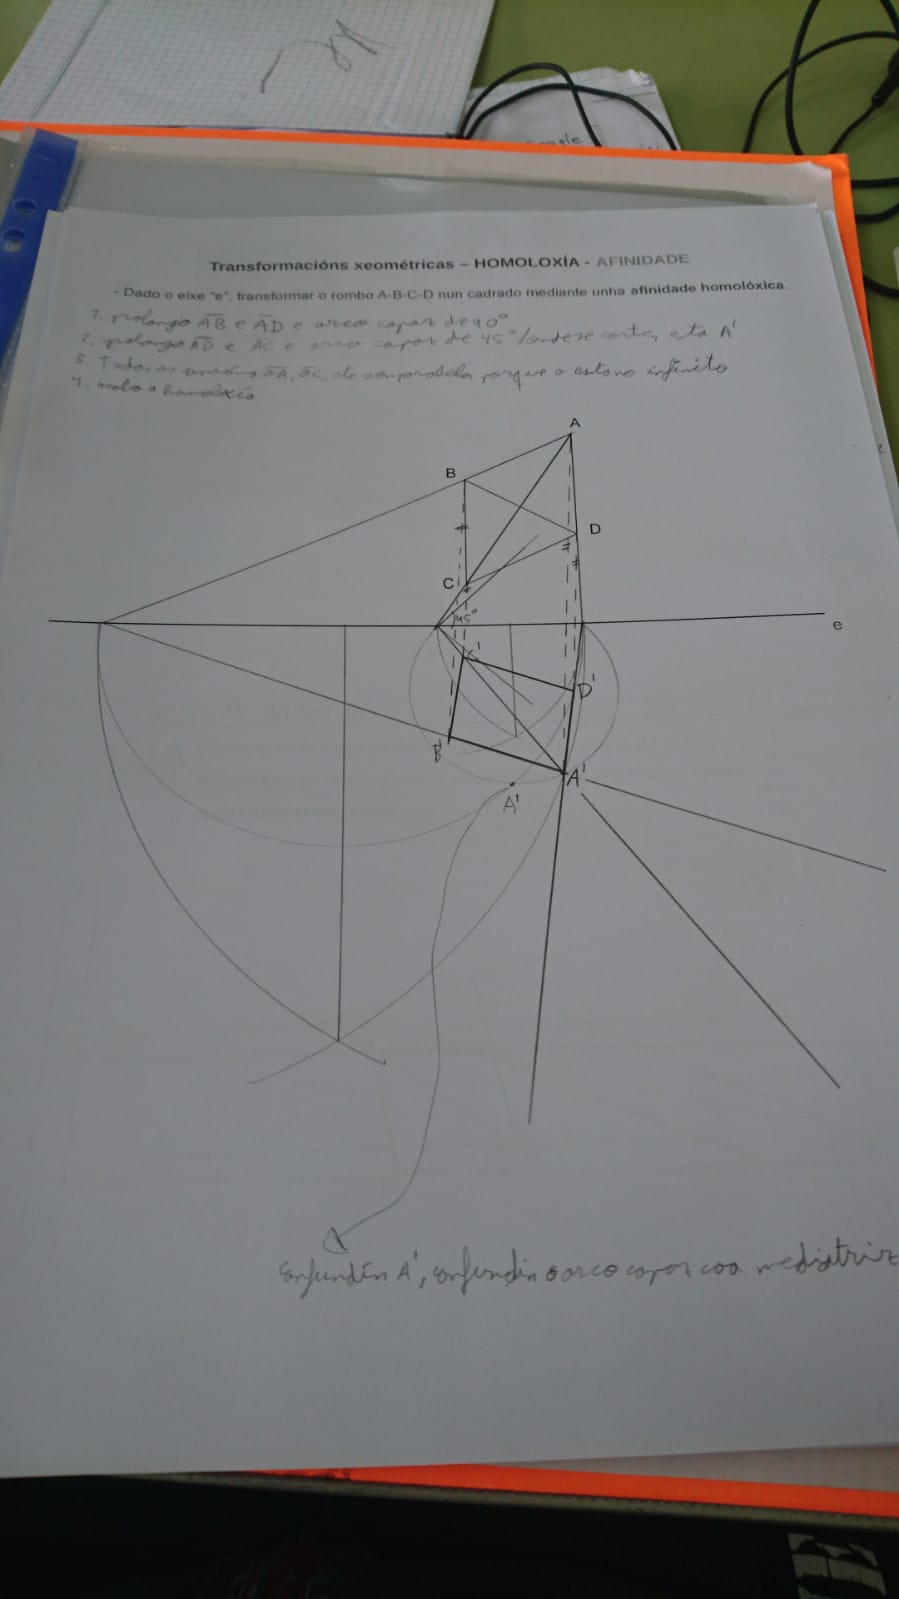 Transformacións xeométricas – HOMOLOXÍA - AFINIDADE
- Dado o eixe "e", transformar o rombo A-B-C-D nun cadrado mediante unha afinidade homolóxica.
1. prolongo AB e AD e arco capaz de 90°
2. prolongo AD e AC e arco capaz de 45° / onde se corte, esta A'
3. Todas as unións OA, OC, etc son paralelas porque o esta no infinito
4. acabo a homoloxía
A
B
D
C
45°
e
C'
D'
B'
A'
A'
confundín A', confundin o arco capaz coa mediatriz